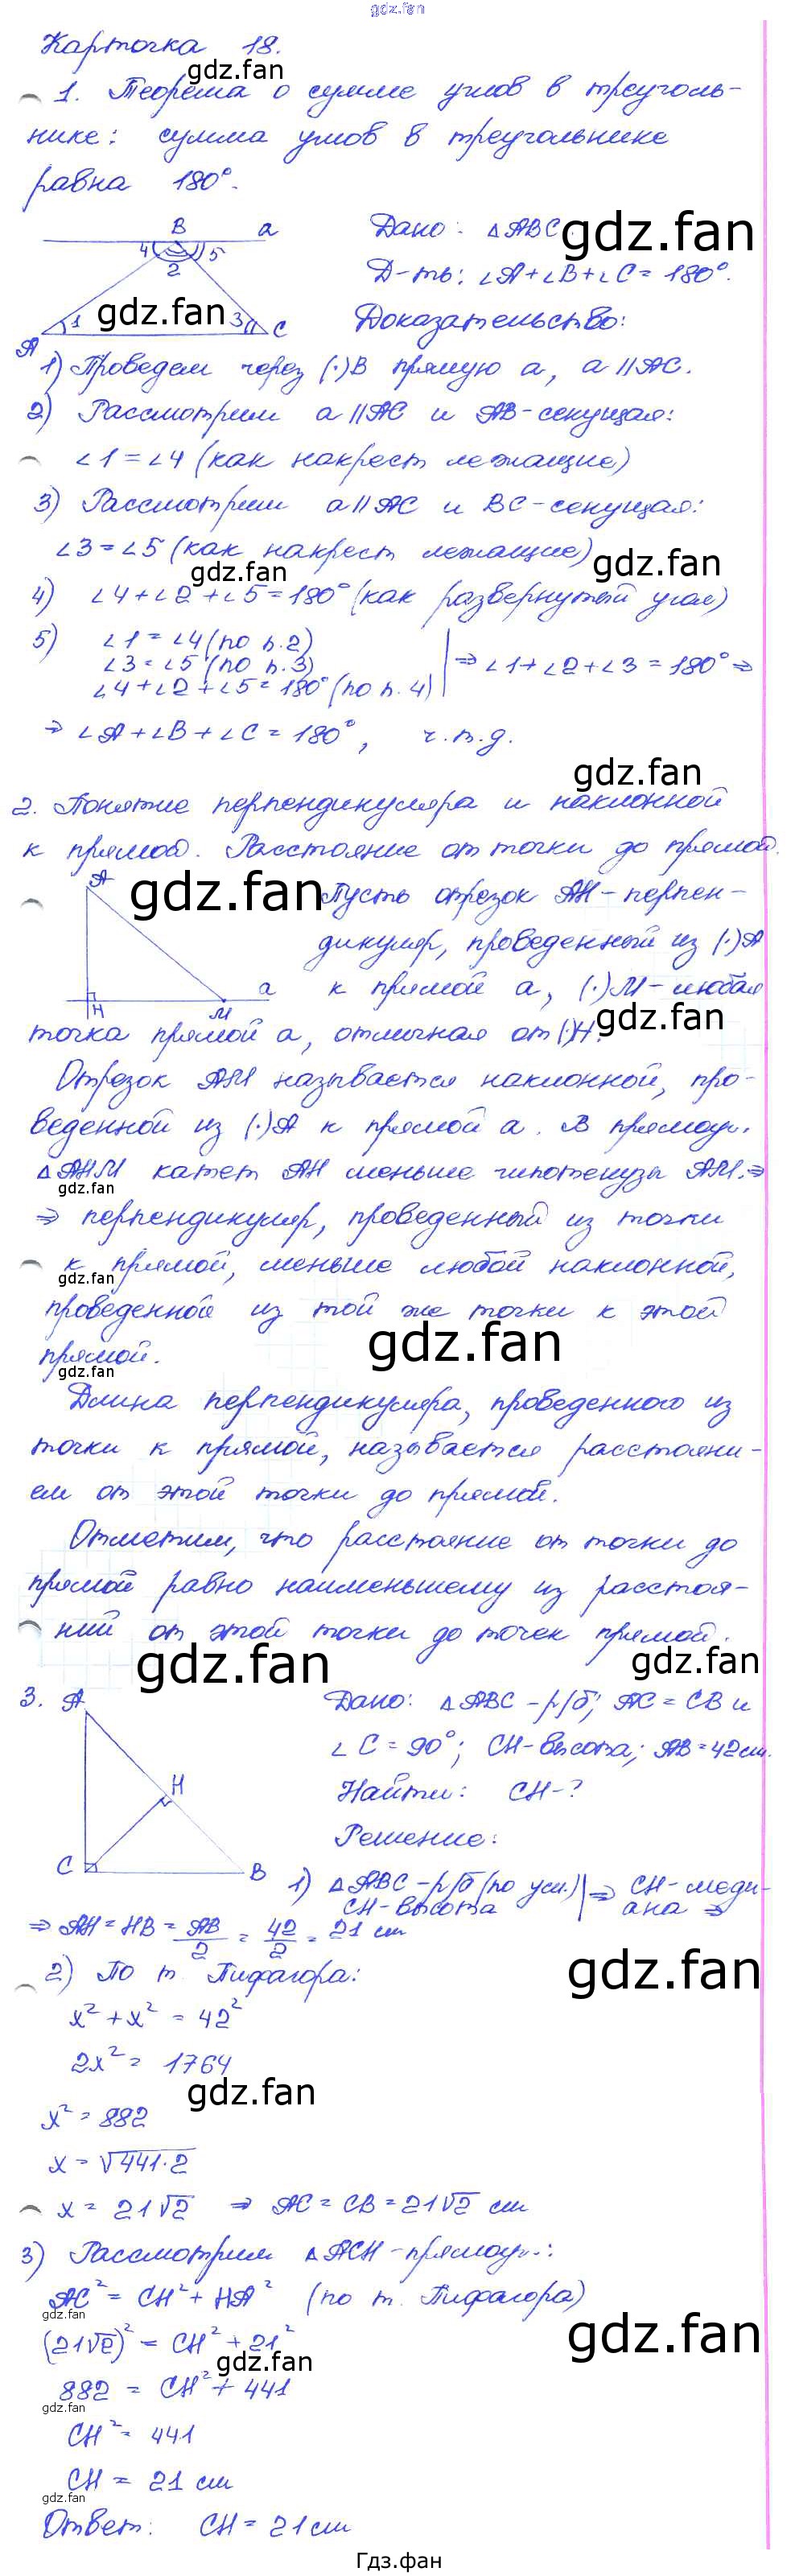 gdz.fan
Карточка 18.
gdz.fan
1. Теорема о сумме углов в треуголь-
нике: сумма углов в треугольнике
равна 180°.
B a
4 5
2
1 3
A C
Дано: △ABC.
gdz.fan
Д-ть: ∠A+∠B+∠C=180°.
gdz.fan
Доказательство:
1) Проведем через (·)B прямую a, a||AC.
2) Рассмотрим a||AC и AB-секущая:
∠1=∠4 (как накрест лежащие)
3) Рассмотрим a||AC и BC-секущая:
∠3=∠5 (как накрест лежащие)
gdz.fan
gdz.fan
4) ∠4+∠2+∠5=180° (как развернутый угол)
5) ∠1=∠4 (по п.2)
∠3=∠5 (по п.3)
∠4+∠2+∠5=180° (по п.4)
⇒ ∠1+∠2+∠3=180° ⇒
⇒ ∠A+∠B+∠C=180°, ч.т.д.
gdz.fan
2. Понятие перпендикуляра и наклонной
к прямой. Расстояние от точки до прямой.
gdz.fan
A
H M a
Пусть отрезок AH-перпен-
дикуляр, проведенный из (·)A
к прямой a, (·)M-любая
точка прямой a, отличная от (·)H.
gdz.fan
Отрезок AM называется наклонной, про-
веденной из (·)A к прямой a. В прямоуг.
△AHM катет AH меньше гипотенузы AM. ⇒
gdz.fan
⇒ перпендикуляр, проведенный из точки
к прямой, меньше любой наклонной,
gdz.fan
проведенной из той же точки к этой
gdz.fan
прямой.
gdz.fan
Длина перпендикуляра, проведенного из
точки к прямой, называется расстояни-
ем от этой точки до прямой.
Отметим, что расстояние от точки до
прямой равно наименьшему из расстоя-
ний от этой точки до точек прямой.
gdz.fan
gdz.fan
3. A
H
C B
Дано: △ABC-р/б; AC=CB и
∠C=90°; CH-высота; AB=42см.
Найти: CH-?
Решение:
1) △ABC-р/б (по усл.)
CH-высота
⇒ CH-меди-
ана ⇒
⇒ AH=HB=AB/2=42/2=21 см
gdz.fan
2) По т. Пифагора:
x²+x²=42²
2x²=1764
gdz.fan
x²=882
x=√441·2
x=21√2 ⇒ AC=CB=21√2 см
3) Рассмотрим △ACH-прямоуг.:
AC²=CH²+HA² (по т. Пифагора)
gdz.fan
gdz.fan
(21√2)²=CH²+21²
gdz.fan
882=CH²+441
gdz.fan
CH²=441
CH=21 см
gdz.fan
Ответ: CH=21см
Гдз.фан